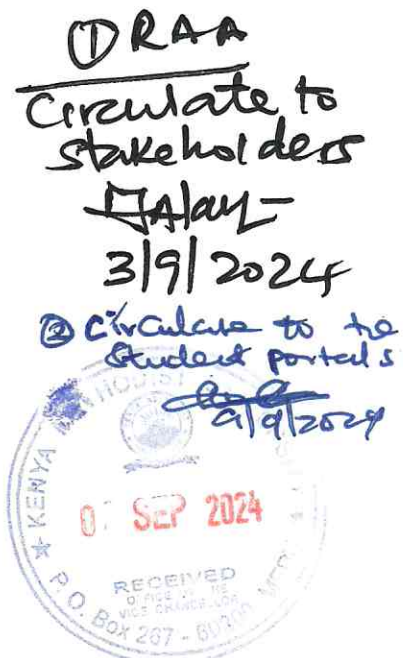 ① RAA
Circulate to
stakeholders
3/9/2024
② Circulate to the
student portals
9/9/2024
KENYA METHODIST
SEP 2024
RECEIVED
OFFICE OF THE
VICE CHANCELLOR
P.O. Box 267 - 60200